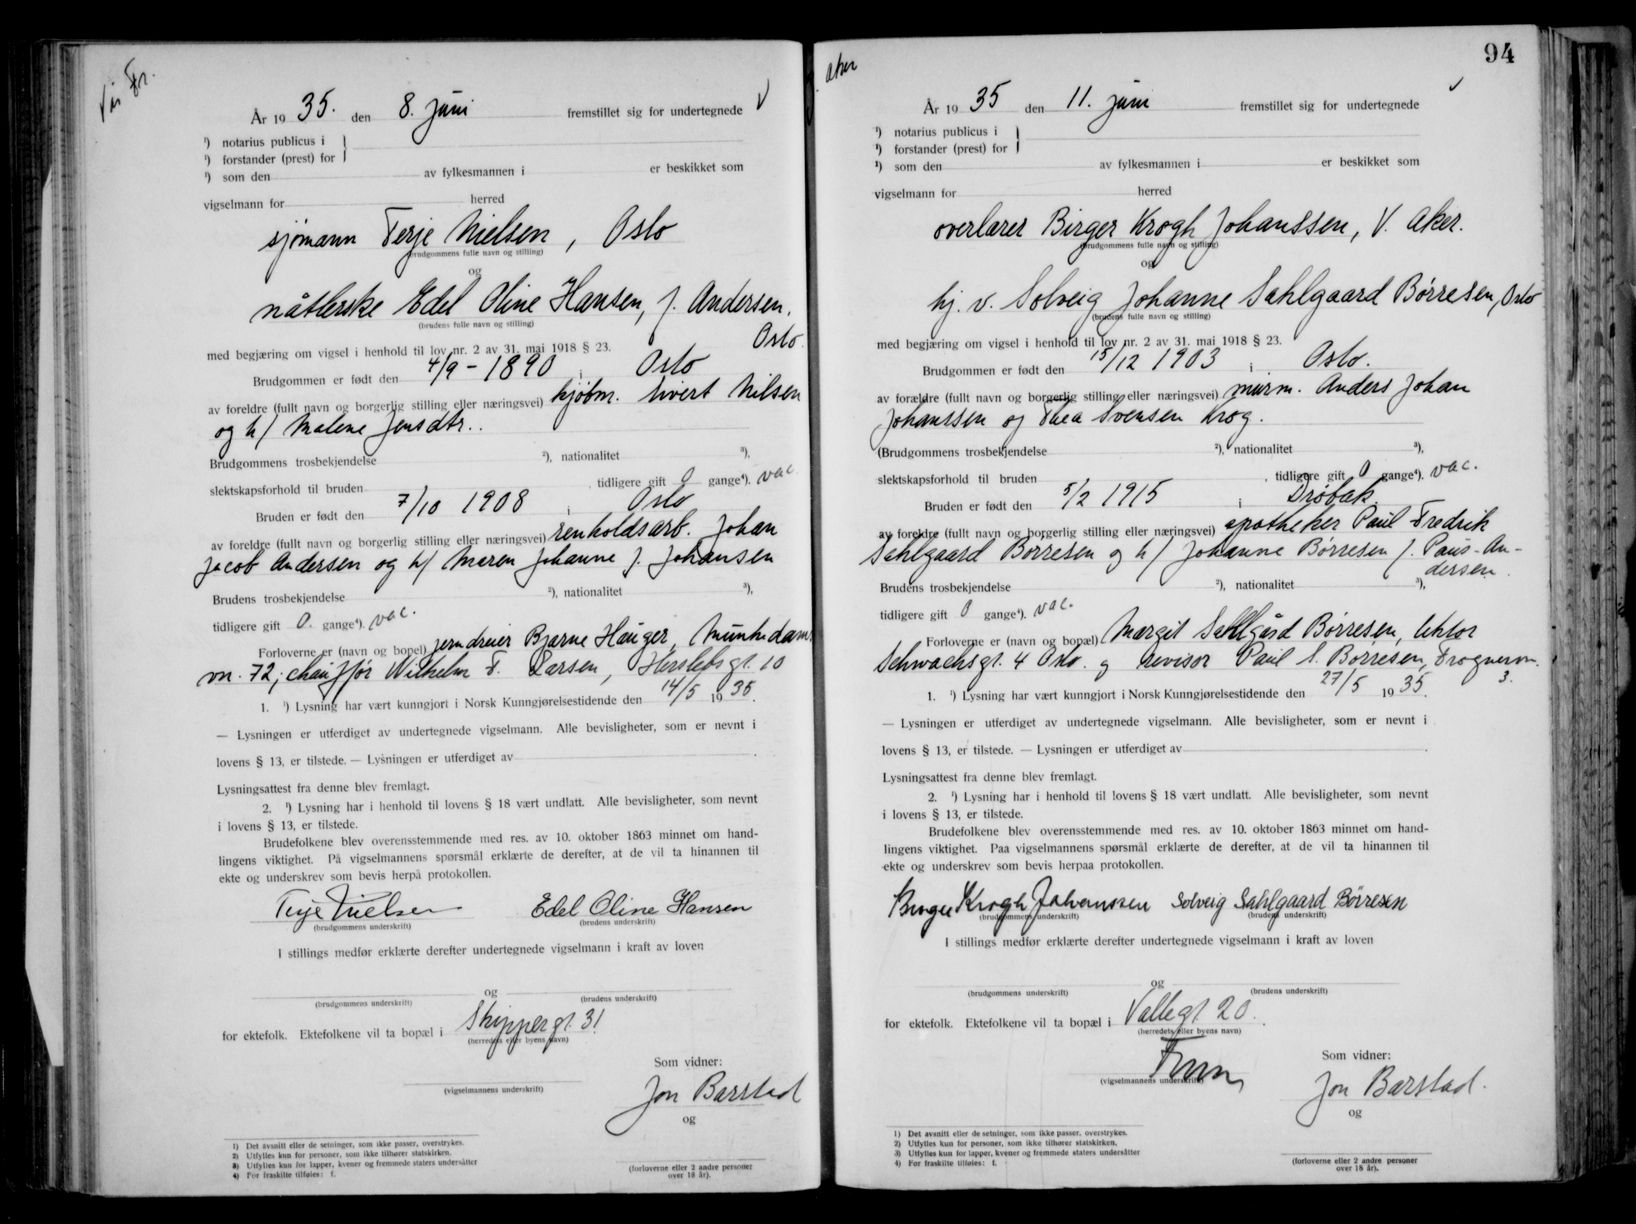 Vår Fr.
År 1935. den 8. juni fremstillet sig for undertegnede V
¹) notarius publicus i
¹) forstander (prest) for
¹) som den av fylkesmannen i er beskikket som
vigselmann for herred
sjømann Terje Nielsen, Oslo
(brudgommens fulle navn og stilling)
og
nåtlerske Edel Oline Hansen, f. Andersen,
(brudens fulle navn og stilling)
Oslo.
med begjæring om vigsel i henhold til lov nr. 2 av 31. mai 1918 § 23.
Brudgommen er født den 4/9 - 1890 i Oslo
av foreldre (fullt navn og borgerlig stilling eller næringsvei) kjøbm. Sivert Nilsen
og h/ Malene Jensdtr..
Brudgommens trosbekjendelse ²), nationalitet ³),
slektskapsforhold til bruden . tidligere gift 0 gange⁴). vac
Bruden er født den 7/10 1908 i Oslo
av foreldre (fullt navn og borgerlig stilling eller næringsvei) renholdsarb. Johan
Jacob Andersen og h/ Maren Johanne f. Johansen
Brudens trosbekjendelse ²), nationalitet ³),
tidligere gift 0. gange⁴). vac.
Forloverne er (navn og bopel) jerndreier Bjarne Hauger, Munkedams
vn. 72; chauffør Wilhelm F. Larsen, Herslebsgt. 10
1. ¹) Lysning har vært kunngjort i Norsk Kunngjørelsestidende den 14/5 1935.
— Lysningen er utferdiget av undertegnede vigselmann. Alle bevisligheter, som er nevnt i
lovens § 13, er tilstede. — Lysningen er utferdiget av .
Lysningsattest fra denne blev fremlagt.
2. ¹) Lysning har i henhold til lovens § 18 vært undlatt. Alle bevisligheter, som nevnt
i lovens § 13, er tilstede.
Brudefolkene blev overensstemmende med res. av 10. oktober 1863 minnet om hand-
lingens viktighet. På vigselmannens spørsmål erklærte de derefter, at de vil ta hinannen til
ekte og underskrev som bevis herpå protokollen.
Terje Nielsen Edel Oline Hansen
(brudgommens underskrift) (brudens underskrift)
I stillings medfør erklærte derefter undertegnede vigselmann i kraft av loven
og
(brudgommens underskrift) (brudens underskrift)
for ektefolk. Ektefolkene vil ta bopæl i Skippergt. 31
(herredets eller byens navn)
Som vidner:
(vigselmannens underskrift)
Jon Barstad
og
1) Det avsnitt eller de setninger, som ikke passer, overstrykes.
2) Utfylles kun for personer, som ikke tilhører statskirken.
3) Utfylles kun for lapper, kvener og fremmede staters undersåtter
4) For fraskilte tilføies: f.
(forloverne eller 2 andre personer
over 18 år).
94
Aker
År 1935 den 11. juni fremstillet sig for undertegnede
¹) notarius publicus i
¹) forstander (prest) for
¹) som den av fylkesmannen i er beskikket som
vigselmann for herred
overlærer Birger Krogh Johanssen, V. Aker.
(brudgommens fulle navn og stilling)
og
hj. v. Solveig Johanne Sahlgaard Børresen, Oslo
(brudens fulle navn og stilling)
med begjæring om vigsel i henhold til lov nr. 2 av 31. mai 1918 § 23.
Brudgommen er født den 15/12 1903 i Oslo.
av forældre (fullt navn og borgerlig stilling eller næringsvei) murm. Anders Johan
Johanssen og Thea Svensen Krog.
(Brudgommens trosbekjendelse ²), nationalitet ³),
slektskapsforhold til bruden . tidligere gift 0 gange⁴). vac.
Bruden er født den 5/2 1915 i Drøbak
av foreldre (fullt navn og borgerlig stilling eller næringsvei) apotheker Paul Fredrik
Sahlgaard Børresen og h/ Johanne Børresen f. Paus-An-
dersen.
Brudens trosbekjendelse ²), nationalitet ³),
tidligere gift 0 gange⁴). vac.
Forloverne er (navn og bopæl) Margit Sahlgård Børresen, lektor
Schwachsgt. 4 Oslo. og revisor Paul S. Børresen, Frognervn.
3.
1. ¹) Lysning har vært kunngjort i Norsk Kunngjørelsestidende den 27/5 1935.
— Lysningen er utferdiget av undertegnede vigselmann. Alle bevisligheter, som er nevnt i
lovens § 13, er tilstede. — Lysningen er utferdiget av .
Lysningsattest fra denne blev fremlagt.
2. ¹) Lysning har i henhold til lovens § 18 vært undlatt. Alle bevisligheter, som nevnt
i lovens § 13, er tilstede.
Brudefolkene blev overensstemmende med res. av 10. oktober 1863 minnet om hand-
lingens viktighet. Paa vigselmannens spørsmål erklærte de derefter, at de vil ta hinannen til
ekte og underskrev som bevis herpaa protokollen.
Birger Krogh Johanssen Solveig Sahlgaard Børresen
(brudgommens underskrift) (brudens underskrift)
I stillings medfør erklærte derefter undertegnede vigselmann i kraft av loven
og
(brudgommens underskrift) (brudens underskrift)
for ektefolk. Ektefolkene vil ta bopæl i Vallegt. 20.
(herredets eller byens navn)
Som vidner:
(vigselmannens underskrift)
Jon Barstad.
og
1) Det avsnitt eller de setninger, som ikke passer, overstrykes.
2) Utfylles kun for personer, som ikke tilhører statskirken.
3) Utfylles kun for lapper, kvener og fremmede staters undersåtter
4) For fraskilte tilføies: f.
(forloverne eller 2 andre personer
over 18 år).